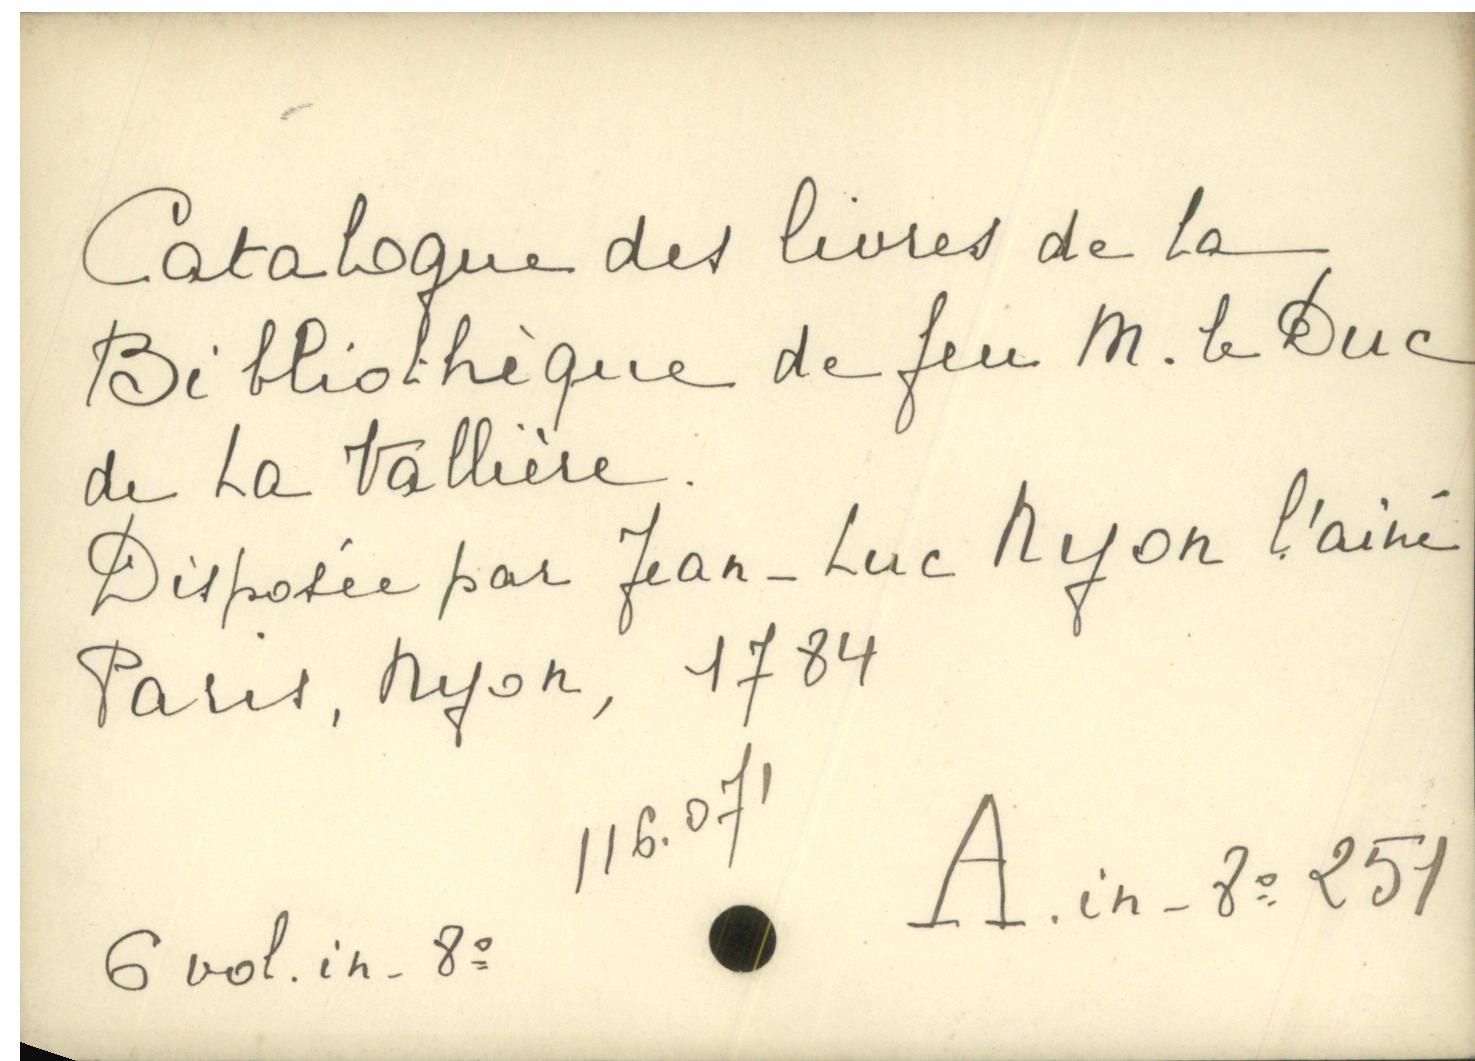 Catalogue des livres de la
Bibliothèque de feu M. le Duc
de La Vallière.
Disposée par Jean-Luc Nyon l'ainé
Paris, Nyon, 1784
116.071
A. in-8º 251
6 vol. in-8º